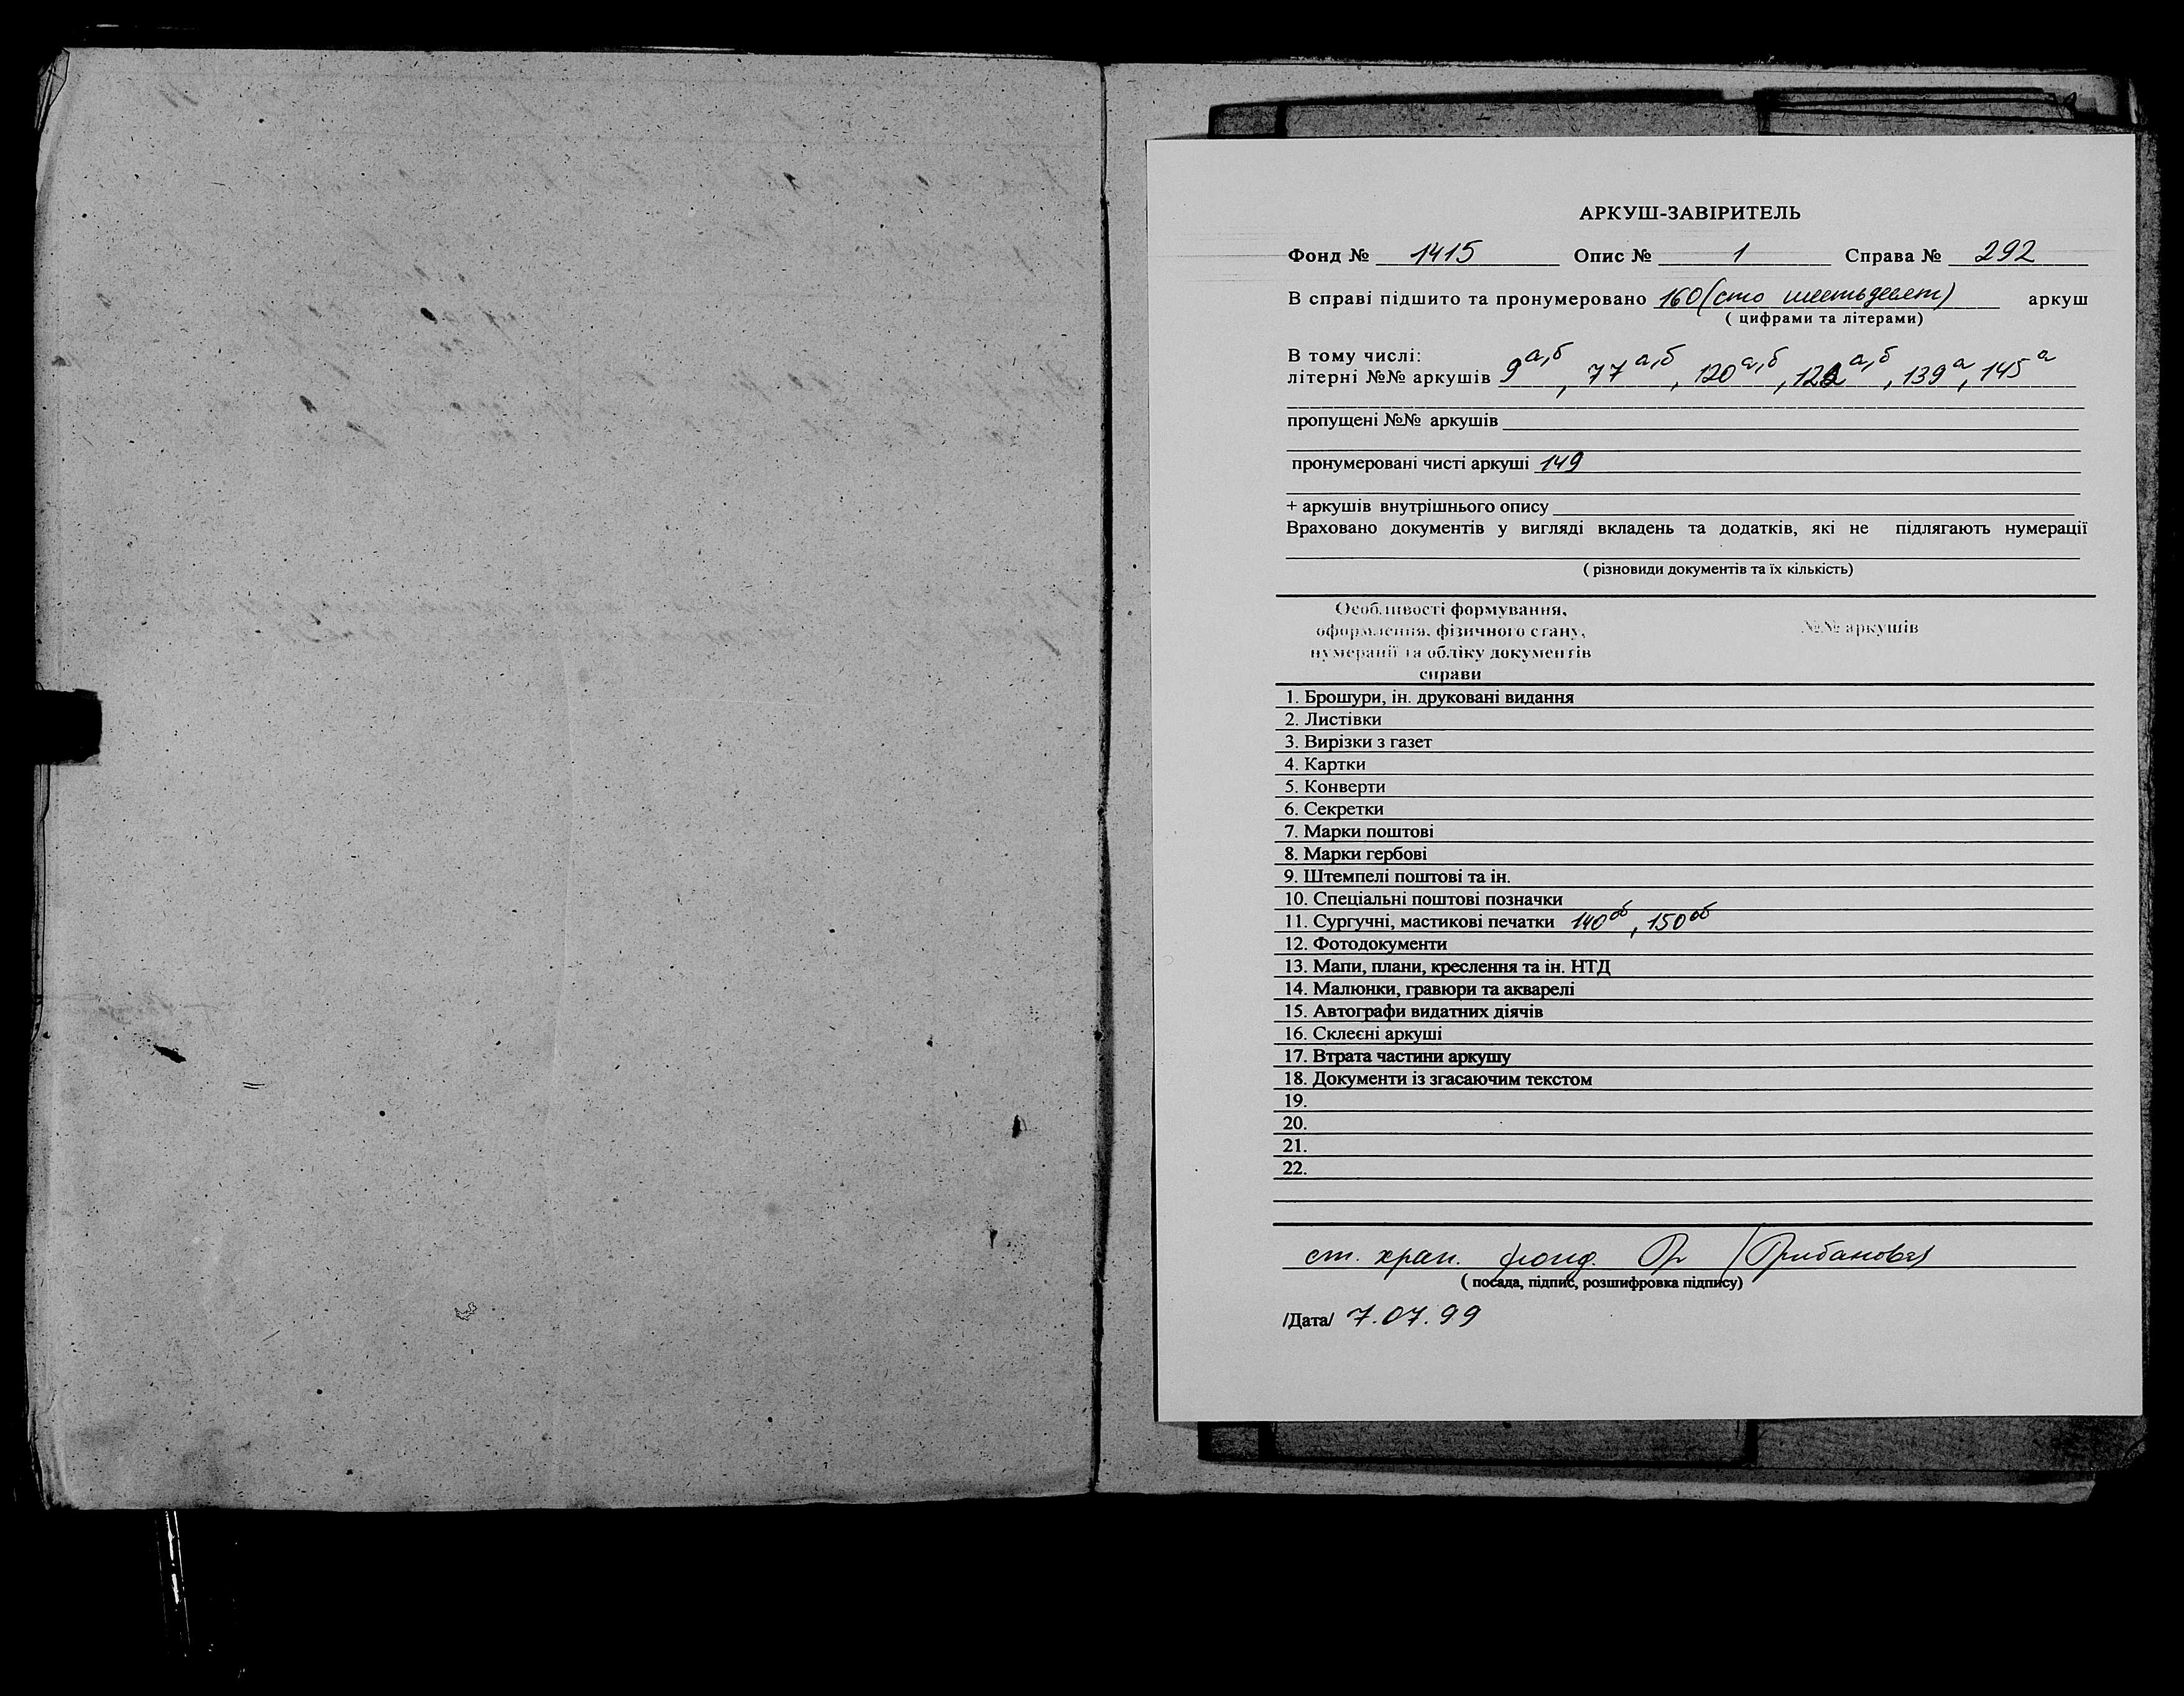 АРКУШ-ЗАВІРИТЕЛЬ
Фонд № 1415 Опис № 1 Справа № 292
В справі підшито та пронумеровано 160 (сто шестьдесят) аркуш
( цифрами та літерами)
В тому числі:
літерні №№ аркушів 9а,б, 77а,б, 120а,б, 122а,б, 139а, 145а
пропущені №№ аркушів
пронумеровані чисті аркуші 149
+ аркушів внутрішнього опису
Враховано документів у вигляді вкладень та додатків, які не підлягають нумерації
( різновиди документів та їх кількість)
Особливості формування, 
оформлення, фізичного стану, №№ аркушів
нумерації та обліку документів
справи
1. Брошури, ін. друковані видання
2. Листівки
3. Вирізки з газет
4. Картки
5. Конверти
6. Секретки
7. Марки поштові
8. Марки гербові
9. Штемпелі поштові та ін.
10. Спеціальні поштові позначки
11. Сургучні, мастикові печатки 140об, 150об
12. Фотодокументи
13. Мапи, плани, креслення та ін. НТД
14. Малюнки, гравюри та акварелі
15. Автографи видатних діячів
16. Склеєні аркуші
17. Втрата частини аркушу
18. Документи із згасаючим текстом
19.
20.
21.
22.
ст. хран. фонд. /Грибановая
( посада, підпис, розшифровка підпису)
/Дата/ 7.07.99